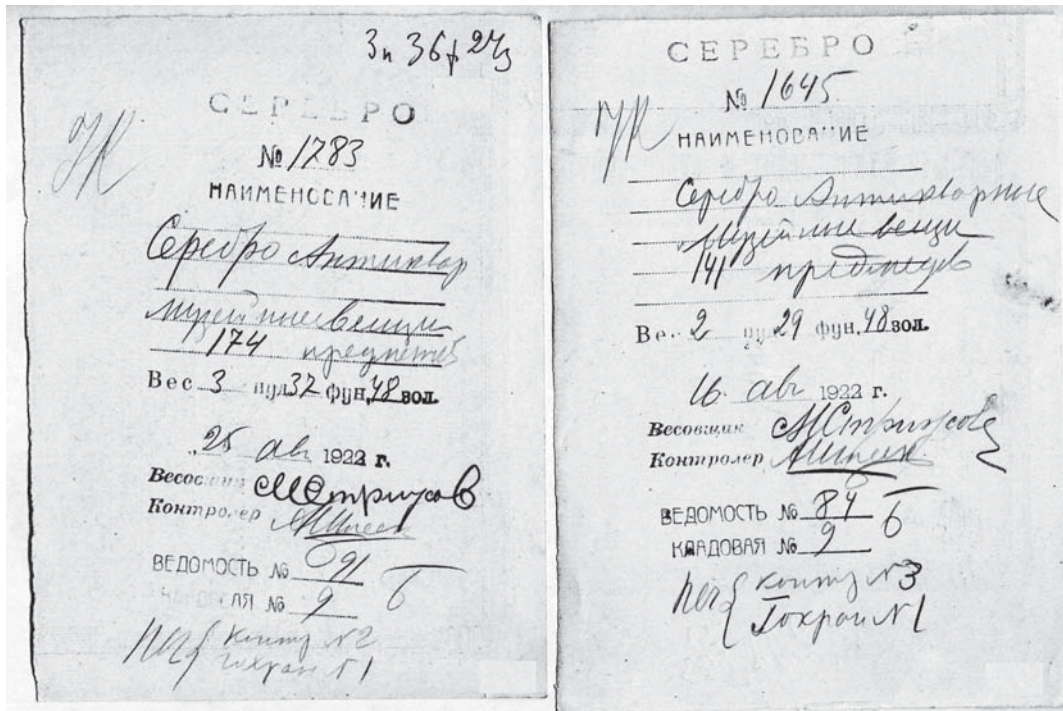 3п 36ф 24з
СЕРЕБРО
№ 1783
НАИМЕНОВАНИЕ
Серебро Антиквар
музейные вещи
174 предметов
Вес 3 пуд 37 фун. 48 зол.
25 авг 1922 г.
Весовщик М Стрижов
Контролер
ВЕДОМОСТЬ № 91 б
КЛАДОВАЯ № 9
печ { контр №2
гохран №1
СЕРЕБРО
№ 1645
НАИМЕНОВАНИЕ
Серебро Антикварные
Музейные вещи
141 предметов
Вес 2 пуд 29 фун. 48 зол.
16 авг 1922 г.
Весовщик М Стрижов
Контролер
ВЕДОМОСТЬ № 84 б
КЛАДОВАЯ № 9
печ { контр №3
Гохран №1